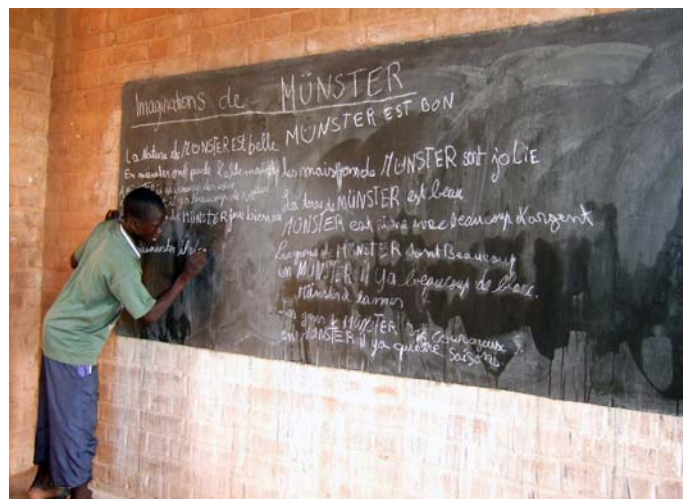 Imaginations de MÜNSTER
MÜNSTER EST BON
La Nature de MÜNSTER Est belle
En munster ont parle l'allemand
il y a beaucoup de
de MÜNSTER joue bien
munster il
les maison de MÜNSTER sont jolie
La terre de MÜNSTER est beau
MÜNSTER est riche avec beaucoup d'argent
Les gens de MÜNSTER sont Beaucoup
en MÜNSTER il ya beaucoup de blanc.
Münster a la mer
Les gens de MÜNSTER sont courageux
en MÜNSTER il ya quatre saisons